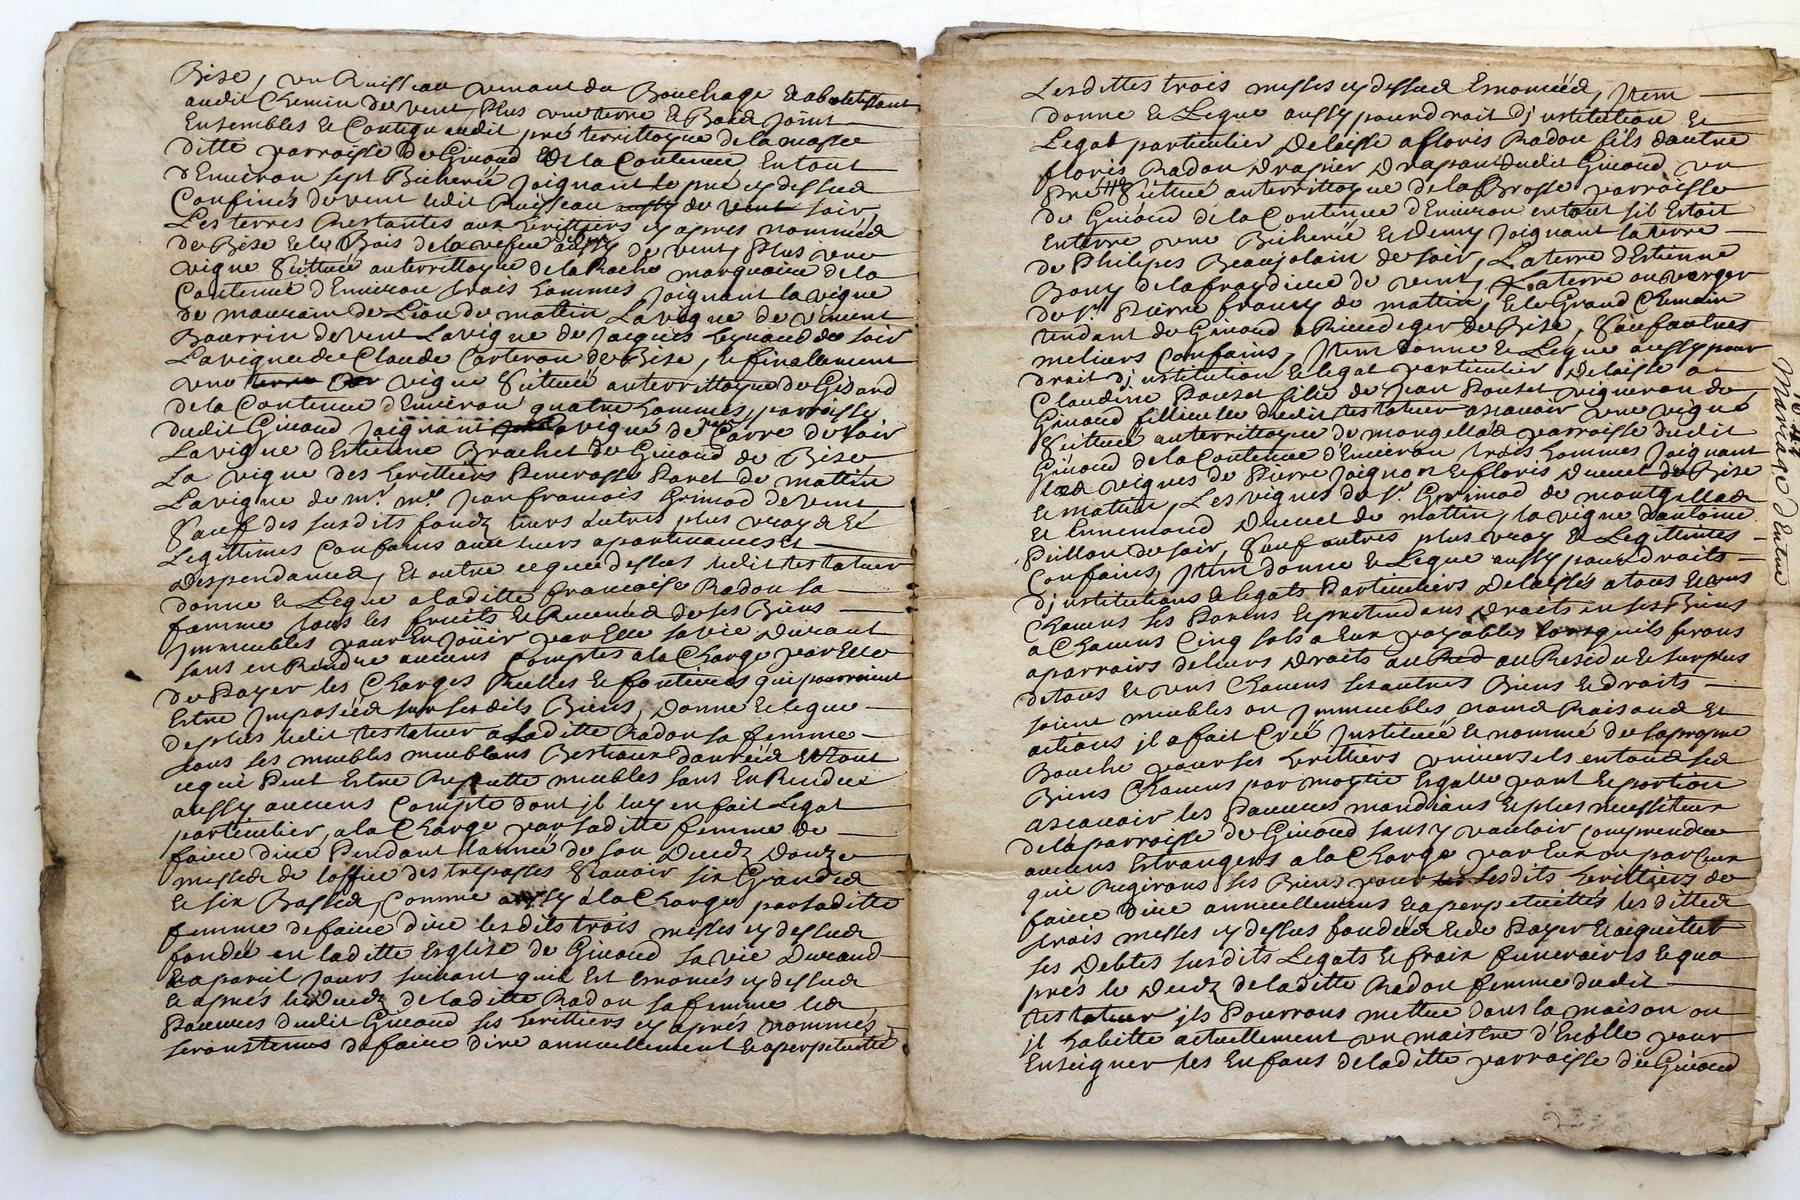 Bise, un Ruisseau venant du Bouchage & aboutissant
audit Chemin de vent, Plus une terre & Bois joint
Ensembles & Contigu audit pré territtoyre de la
ditte parroisse de Givord & de la Contenue En tout
d'Environ sept Bicherée joignant le pré cy dessus
Confines de vent ledit Ruisseau de soir,
Les terres Restantes aux heritiers cy apres nommés
de Bise & le Bois de la vefue de vent, Plus une
vigne scituée au territtoyre de la Roche marquaire de la
Contenue d'Environ trois hommes joignant la vigne
de de Lion du matin La vigne de Vincent
Bourrin de vent La vigne de Jacques de soir
La vigne de Claude Corteron de Bise, & finallement
une vigne scituée au territtoyre du Gisard
de la Contenue d'Environ quatre hommes, parroisse
dudit Givord joignant la vigne de Carre de soir
La vigne d'Estienne Brachet de Givord de Bise
La vigne des heritiers Paret du mattin
La vigne de mr me Jean francois Grimod de vent
Sauf des susdits fondz leurs autres plus vrays &
Legittimes Confains avec leurs apartenances &
Despendances, Et outre ce que dessus ledit testateur
donne & Legue a laditte francoise Radou sa
femme tous les fruits & Revenus de ses Biens
Immeubles pour En joüir par Elle sa vie Durant
sans en Rendre aucuns Comptes a la Charge par Elle
de Payer les Charges Réelles & foncieres qui pourroient
Estre Imposées sur sesdits Biens, Donne & legue
de plus ledit testateur a Laditte Radou sa femme
tous les meubles meublans Bestiaux danrées & tout
ce qui Peut Estre Reputté meubles sans En Rendre
aussy aucuns Compte dont il luy en fait Legat
particulier, a la Charge par saditte femme de
faire dire Pendant l'année de son Decedz Douze
messes de l'office des trepassés Scavoir six Grandes
& six Basses, Comme aussy a la Charge par saditte
femme de faire dire lesdits trois messes cy dessus
fondés en laditte Esglise de Givord sa vie Durand
& a pareil jours suivant quil Est Enoncés cy dessus
& aprés le Decedz de laditte Radou sa femme les
Pauvres dudit Givord ses heritiers cy aprés nommés
seront tenus de faire dire annuellement & a perpetuitté
Lesdittes trois messes cy dessus Enoncées, Item
donne & Legue aussy pour droit d'institution &
Legat particulier Delaisse a floris Radou fils d'autre
floris Radou Drapier Drapant dudit Givord, un
Pré scitué au territtoyre de la Brosse parroisse
de Givord de la Contenue d'Environ en tout sil Estoit
En terre une Bicherée & Demy joignant la terre
de Philipes Beaujolain de soir, La terre d'Estienne
Bony de vent, La terre ou verger
du Sr Pierre francy de mattin, & le Grand Chemain
tendant de Givord a Rivedegier de Bise, Sauf autres
meliurs Confains, Item Donne & Legue aussy pour
droit d'institution & legat particulier Delaisse a
Claudine Pouset filie de Jean Pouset vigneron de
Givord fillieulle dudit testateur ascavoir une vigne
scituée au territtoyre de mongellas parroisse dudit
Givord de la Contenue d'Environ trois hommes joignant
les vignes de Pierre Joignon & floris Duvet de Bise
& matin, Les vignes du Sr Grimod de montgellas
& Ennemond Duvet de mattin, la vigne d'antoine
Pitton de soir, Sauf autres plus vray & Legitimes
Confains, Item donne & Legue aussy pour droits
d'institutions & legats Particuliers Delaissés a tous & uns
Chacuns ses Parens & pretendans Droits en ses Biens
a Chacuns Cinq sols a Eux payables lorsquils feront
aparroirs de leurs Droits au Residu & surplus
de tous & uns Chacuns ses autres Biens & droits
soient meubles ou Immeubles noms Raisons &
actions il a fait Créé Instituée & nommé de sa propre
Bouche pour ses heritiers universels en tous ses
Biens Chacuns par moytié Esgalle part & portion
ascavoir les Pauvres mandians & plus nessiteux
de la parroisse de Givord sans y vouloir comprendre
aucuns Estrangers a la Charge par Eux ou par Ceux
qui Regirons ses Biens pour Lesdits heritiers de
faire Dire annuellemens & a perpetuittés lesdittes
trois messes cy dessus fondées & de Payer & aquitter
ses Debtes susdits Legats & fraix funerairs & qua
prés le Decedz de laditte Radou femme dudit
testateur ils Pourrons mettre dans la maison ou
il habitte actuellement un maistre d'Ecolle pour
Enseigner les Enfans de laditte parroisse de Givord
Mariage d'Entre